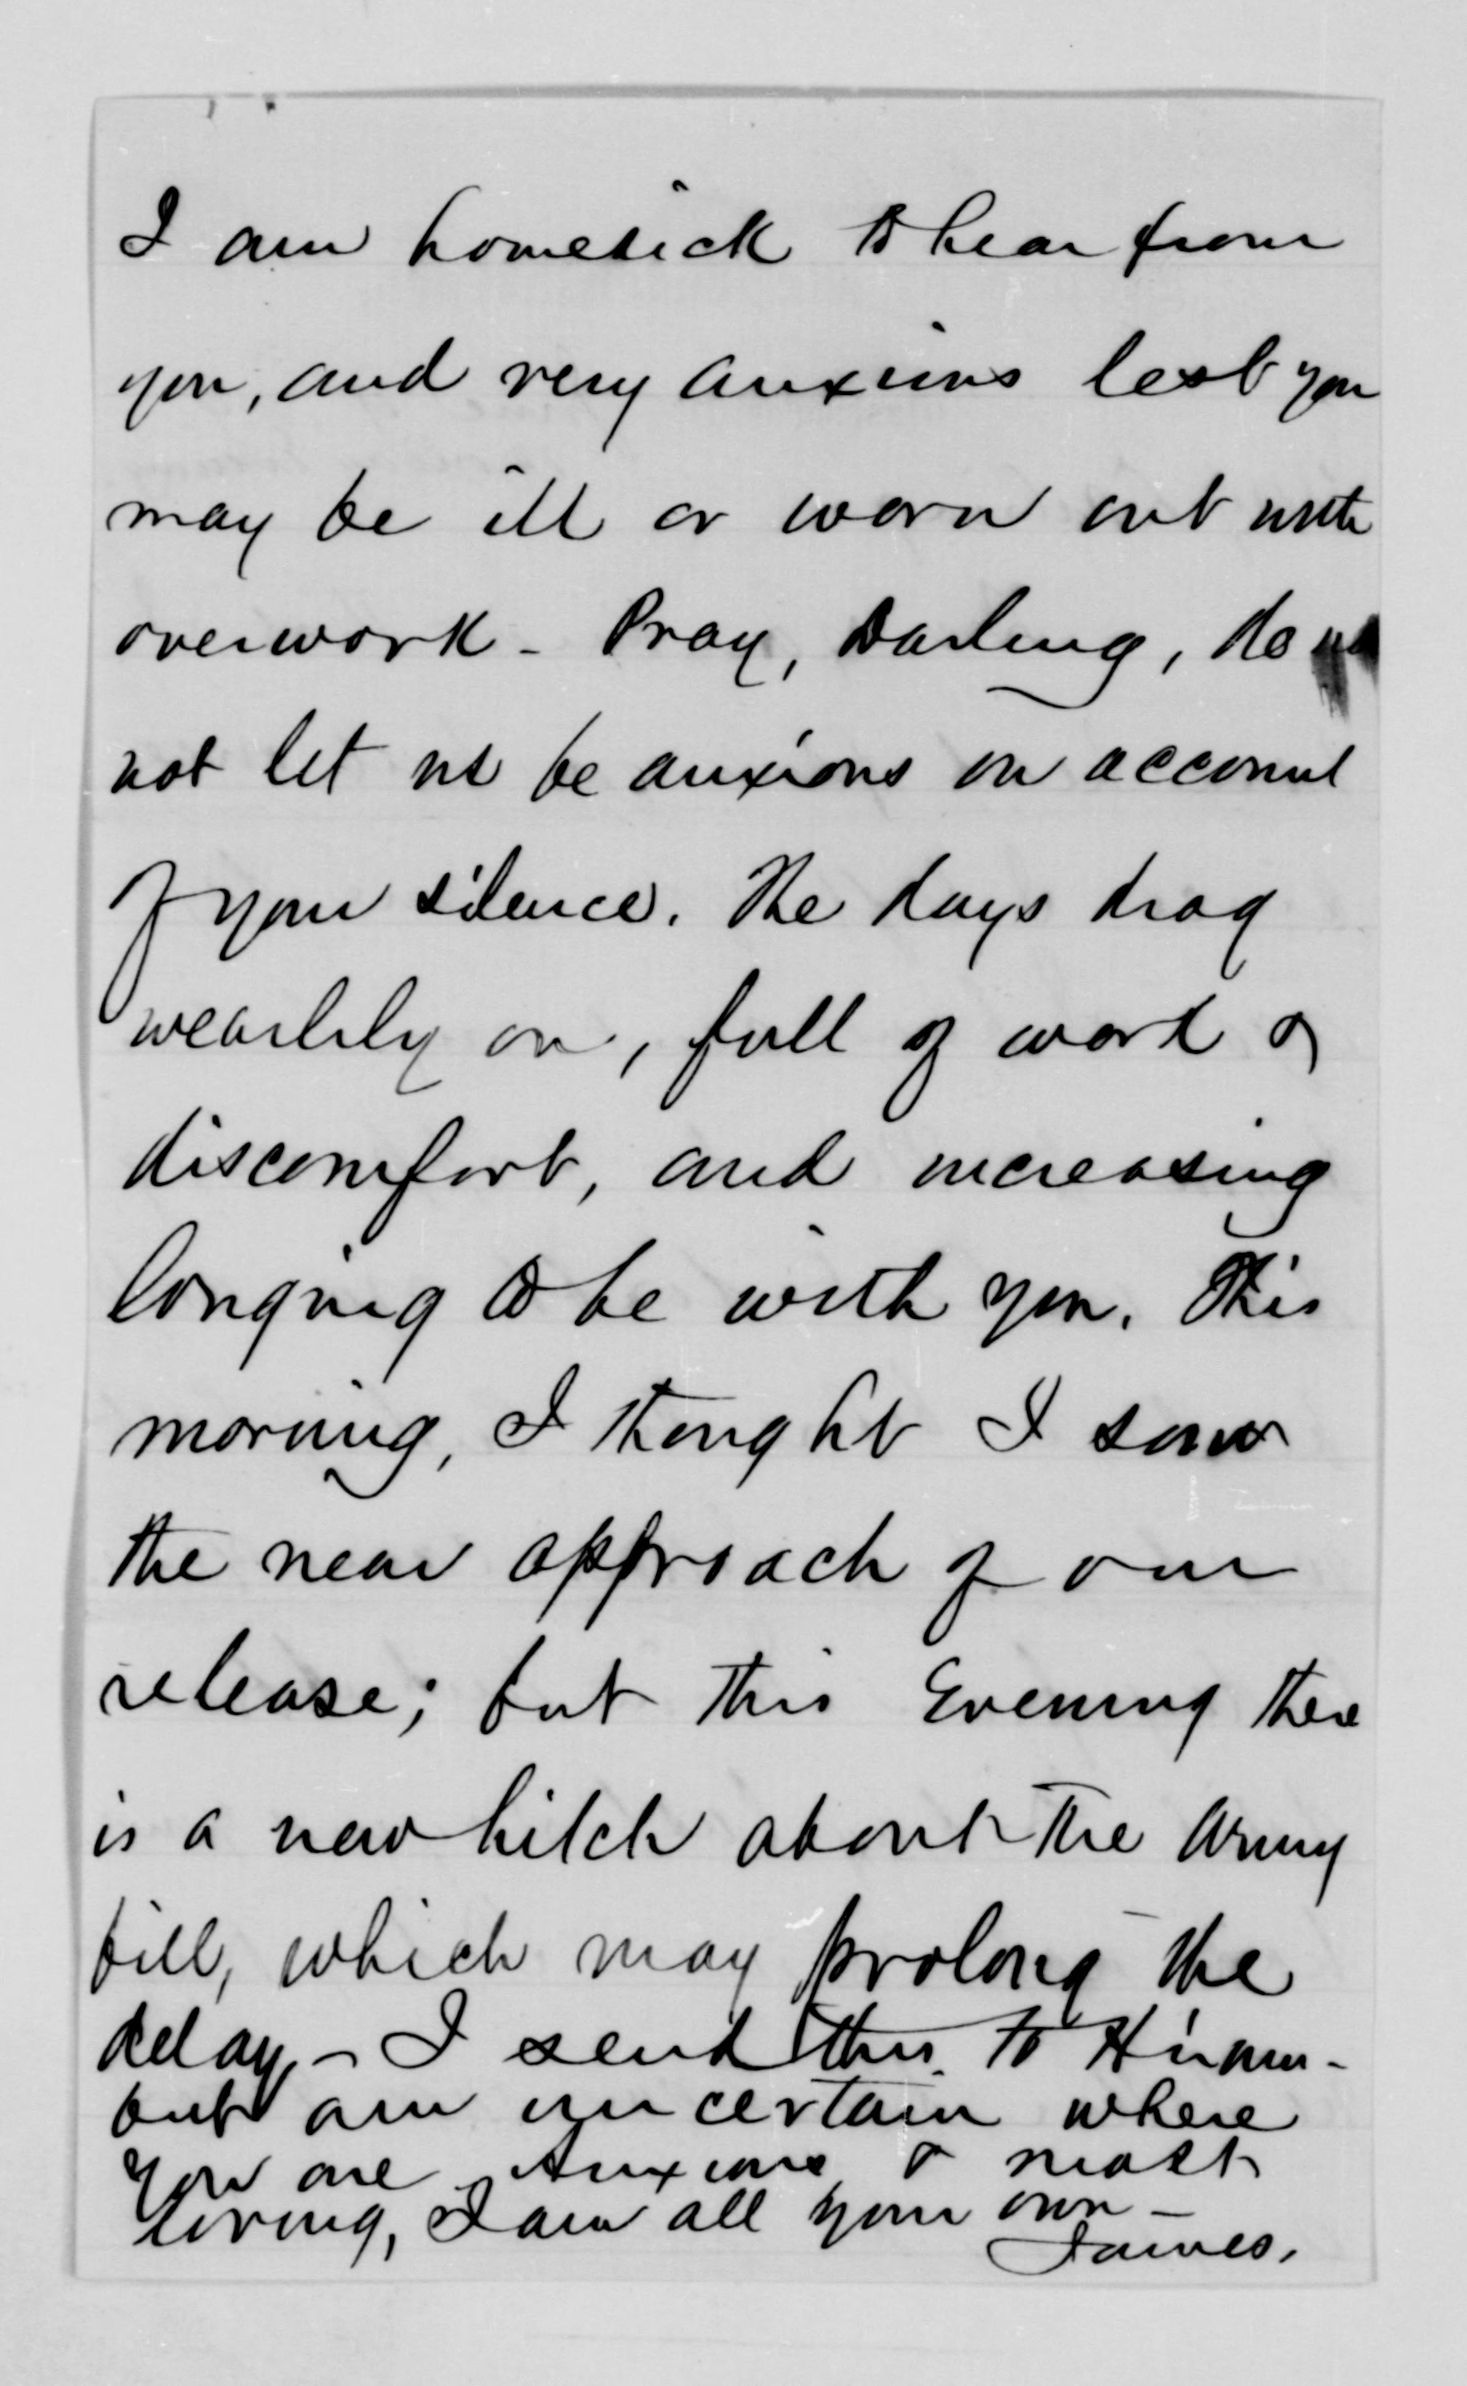 I am homesick to hear from
you, and very anxious lest you
may be ill or worn out with
overwork - Pray, Darling, do
not let us be anxious on account
of your silence. The days drag
wearily on, full of work &
discomfort, and increasing
longing to be with you. This
morning, I thought I saw
the near approach of our
release; but this Evening there
is a new hitch about the Army
bill, which may prolong the
delay. - I send this to Hiram -
but am uncertain where
you are. Anxious & most
loving, I am all your own -
James.